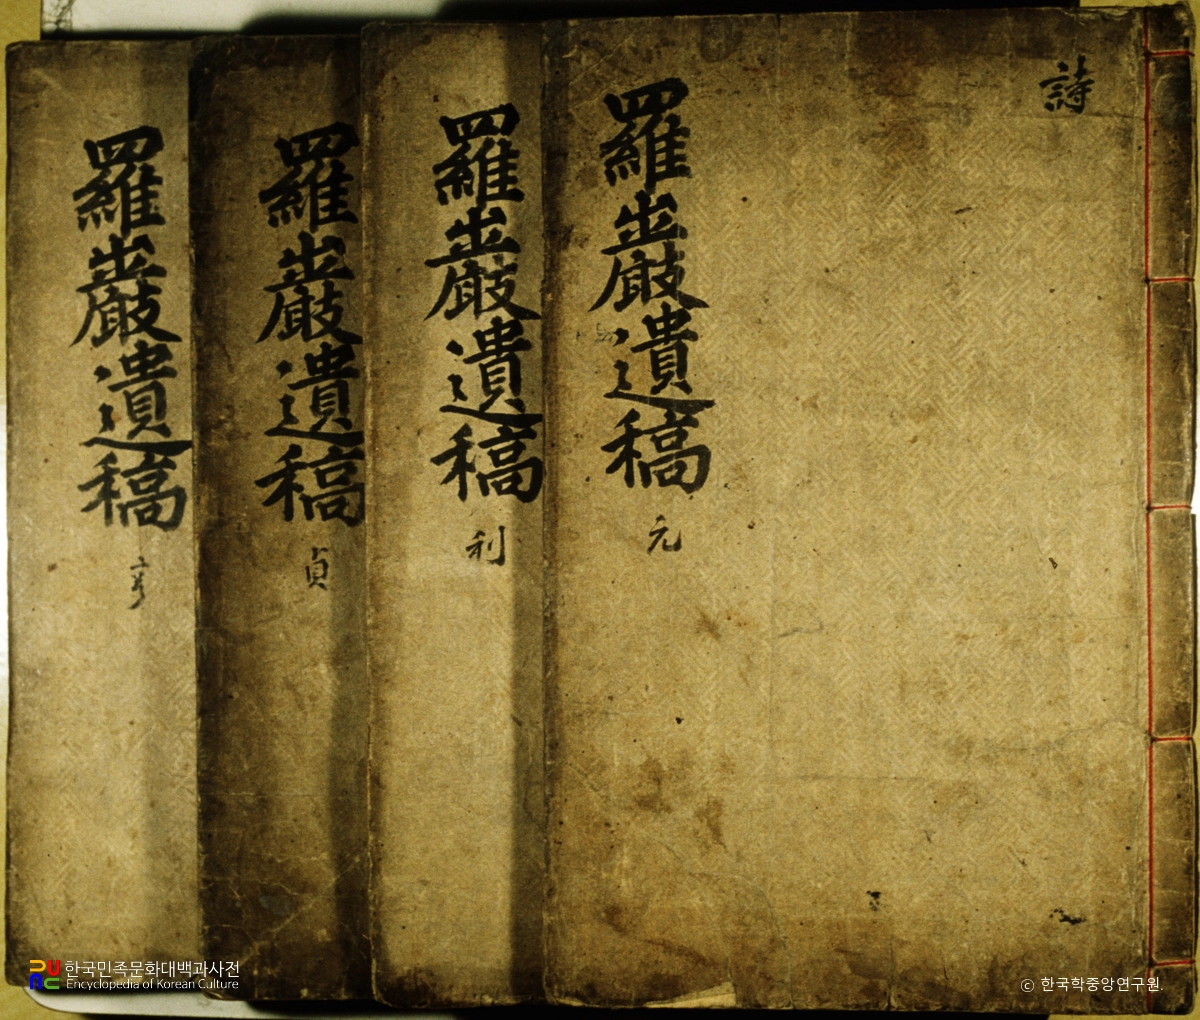 詩
羅巖遺稿
元
羅巖遺稿
利
羅巖遺稿
貞
羅巖遺稿
亨
한국민족문화대백과사전
Encyclopedia of Korean Culture
ⓒ 한국학중앙연구원.